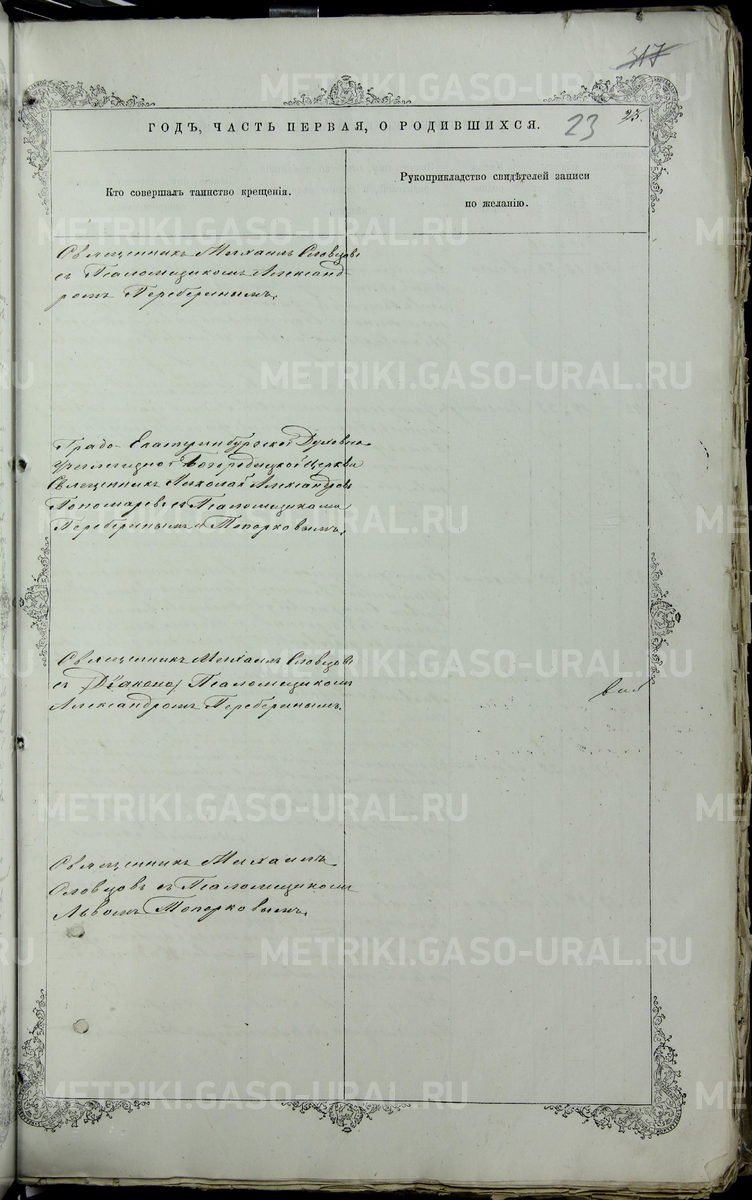 317
ГОДЪ, ЧАСТЬ ПЕРВАЯ, О РОДИВШИХСЯ.
23
23.
Кто совершалъ таинство крещенія.
Рукоприкладство свидѣтелей записи
по желанію.
Священникъ Михаилъ Словцовъ
съ Псаломщикомъ Александ-
ромъ Переберинымъ.
Градо-Екатеринбургской Духовно-
Училищной Богородицкой церкви
Священникъ Николай Александровъ
Пономаревъ съ Псаломщиками
Переберинымъ и Топорковымъ.
Священникъ Михаилъ Словцовъ
съ (Діакономъ) Псаломщикомъ
Александромъ Переберинымъ.
Священникъ Михаилъ
Словцовъ съ Псаломщикомъ
Львомъ Топорковымъ.
METRIKI.GASO-URAL.RU
METRIKI.GASO-URAL.RU
METRIKI.GASO-URAL.RU
METRIKI.GASO-URAL.RU
METRIKI.GASO-URAL.RU
METRIKI.GASO-URAL.RU
METRIKI.GASO-URAL.RU
METRIKI.GASO-URAL.RU